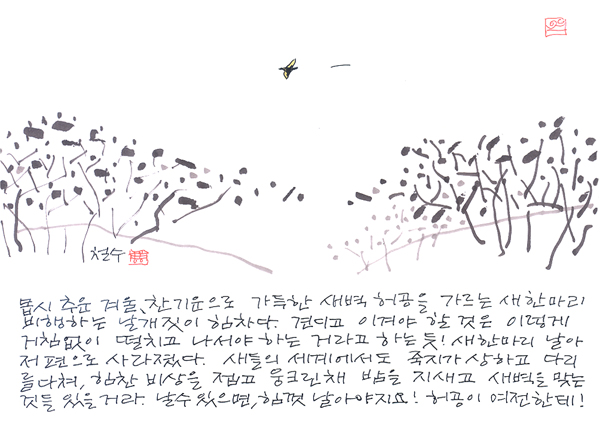 철수
몹시 추운 겨울, 찬기운으로 가득한 새벽 허공을 가르는 새한마리
비행하는 날개짓이 힘차다. 견디고 이겨야 할 것은 이렇게
거침없이 떨치고 나서야 하는 거라고 하는 듯! 새한마리 날아
저편으로 사라졌다. 새들의 세계에서도 죽지가 상하고 다리
를 다쳐, 힘찬 비상을 접고 웅크린채 밤을 지새고 새벽을 맞는
것들 있을거라. 날수 있으면, 힘껏 날아야지요! 허공이 여전한데!